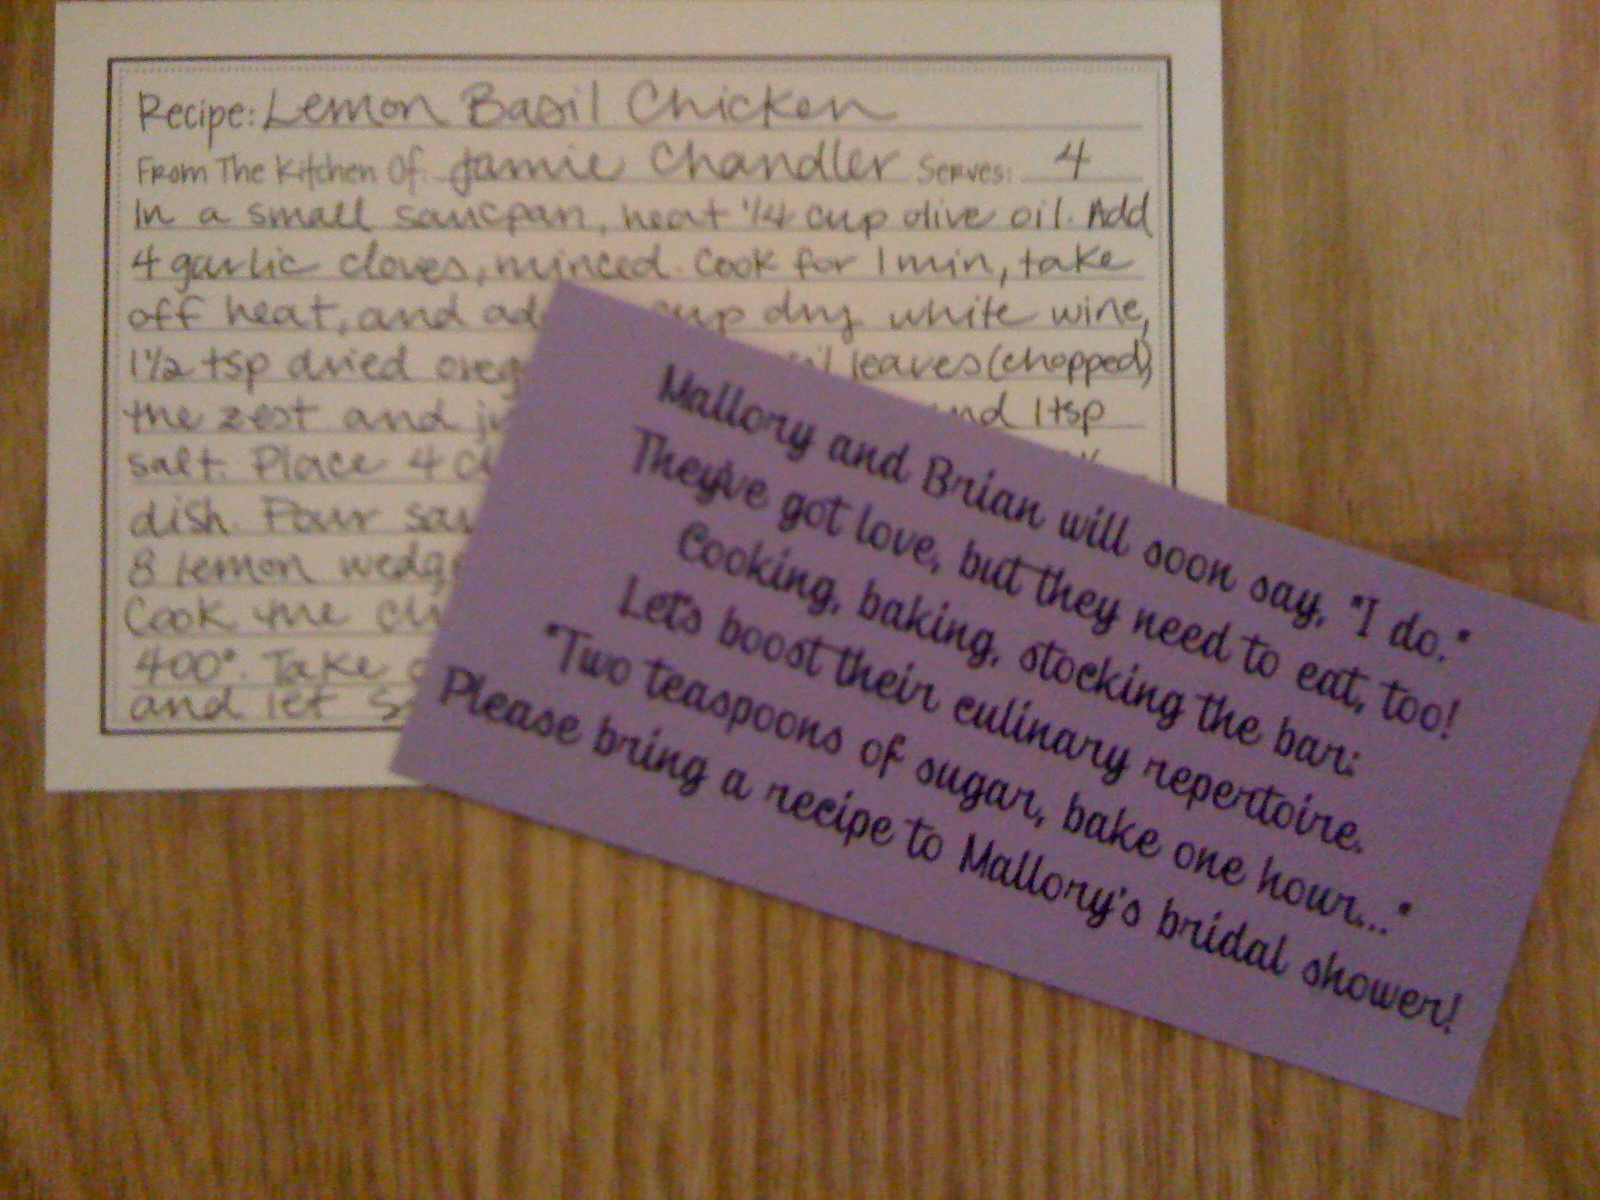 Recipe: Lemon Basil Chicken
From The Kitchen Of: Jamie Chandler Serves: 4
In a small saucpan, heat 1/4 cup olive oil. Add
4 garlic cloves, minced. Cook for 1 min, take
off heat, and cup dry white wine,
1 1/2 tsp dried leaves (chopped)
the zest and 1 tsp
salt. Place 4
dish. Pour
8 lemon
Cook the
400°. Take
and let
Mallory and Brian will soon say, "I do."
They've got love, but they need to eat, too!
Cooking, baking, stocking the bar:
Let's boost their culinary repertoire.
"Two teaspoons of sugar, bake one hour..."
Please bring a recipe to Mallory's bridal shower!